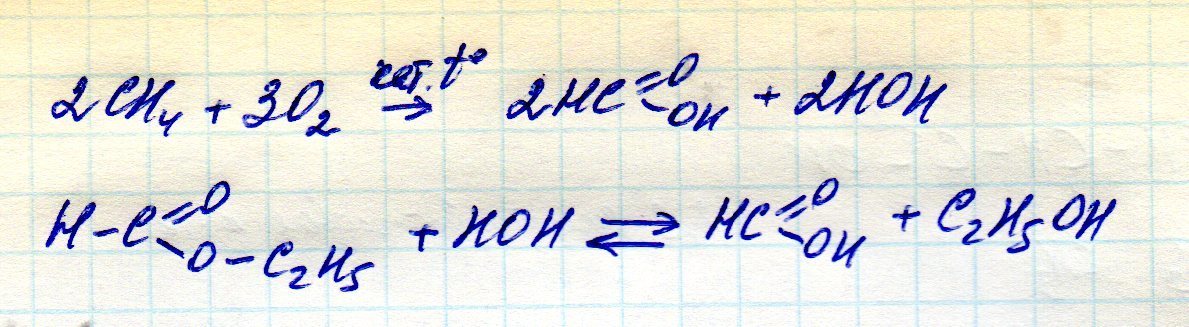 2CH₄ + 3O₂ кат. t° → 2HC=O–OH + 2HOH
H–C=O–O–C₂H₅ + HOH ⇌ HC=O–OH + C₂H₅OH